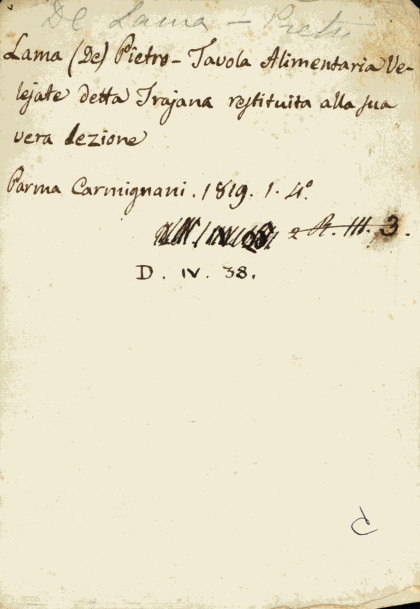 De Lama - Pietro
Lama (De) Pietro - Tavola Alimentaria Ve-
lejate detta Trajana restituita alla sua
vera lezione
Parma Carmignani. 1819. 1. 4°.
R. III. 3.
D. IV. 38.